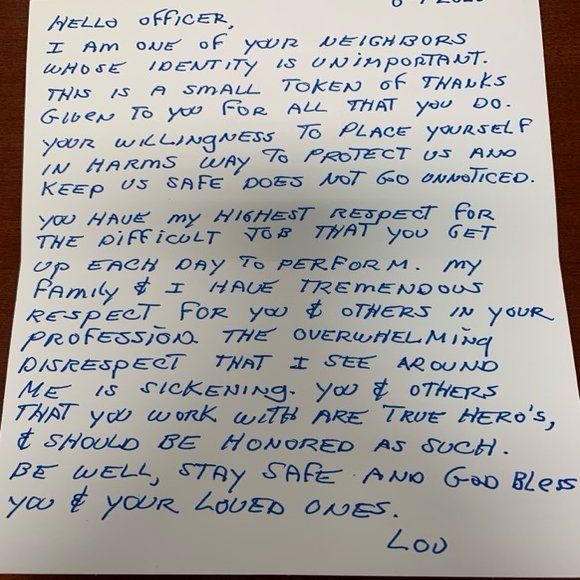 HELLO OFFICER,
I AM ONE OF YOUR NEIGHBORS
WHOSE IDENTITY IS UNIMPORTANT.
THIS IS A SMALL TOKEN OF THANKS
GIVEN TO YOU FOR ALL THAT YOU DO.
YOUR WILLINGNESS TO PLACE YOURSELF
IN HARMS WAY TO PROTECT US AND
KEEP US SAFE DOES NOT GO UNNOTICED.
YOU HAVE MY HIGHEST RESPECT FOR
THE DIFFICULT JOB THAT YOU GET
UP EACH DAY TO PERFORM. MY
FAMILY & I HAVE TREMENDOUS
RESPECT FOR YOU & OTHERS IN YOUR
PROFESSION. THE OVERWHELMING
DISRESPECT THAT I SEE AROUND
ME IS SICKENING. YOU & OTHERS
THAT YOU WORK WITH ARE TRUE HERO'S,
& SHOULD BE HONORED AS SUCH.
BE WELL, STAY SAFE AND GOD BLESS
YOU & YOUR LOVED ONES.
LOU